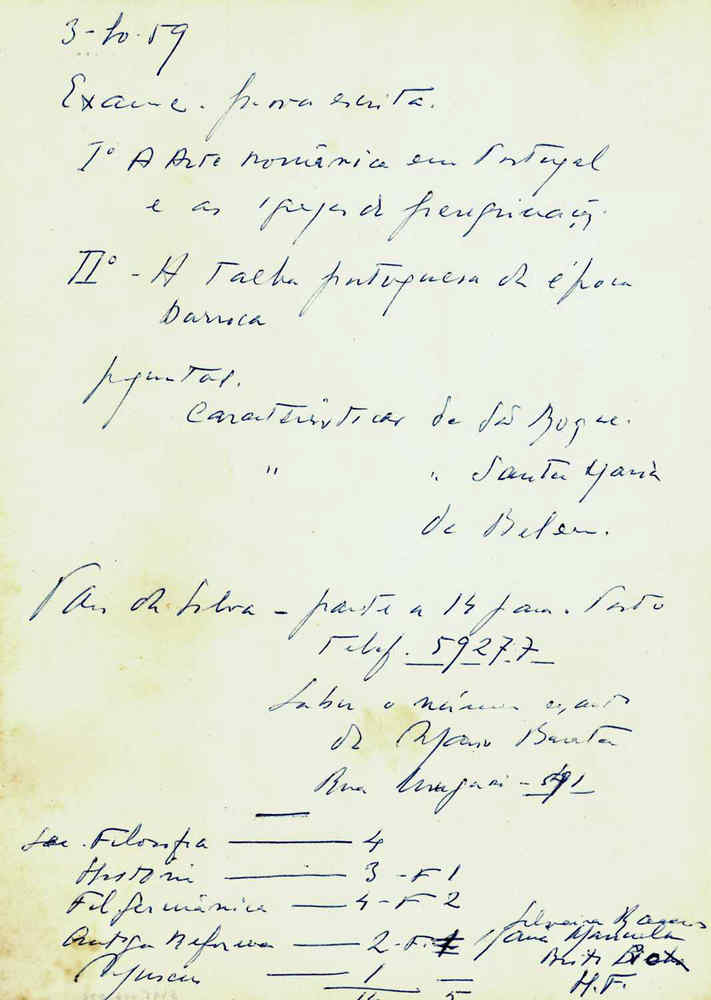 3-10-59
Exame. prova escrita.
Iº A Arte românica em Portugal
e as igrejas de peregrinação.
IIº - A Talha portuguesa da época
Barroca
perguntas.
Características de São Roque.
" " Santa Maria
de Belem.
da Silva - parte a 14 para Porto
Telef. 59277
Saber o número exacto
de Barata
Rua - 591
Sec. Filosofia — 4
História — 3 - F 1
Fil germânica — 4 - F 2
Antiga Reforma — 2 - F. 1
— 1
5
Silveira Ramos
Maria Manuela
Brito
H.F.